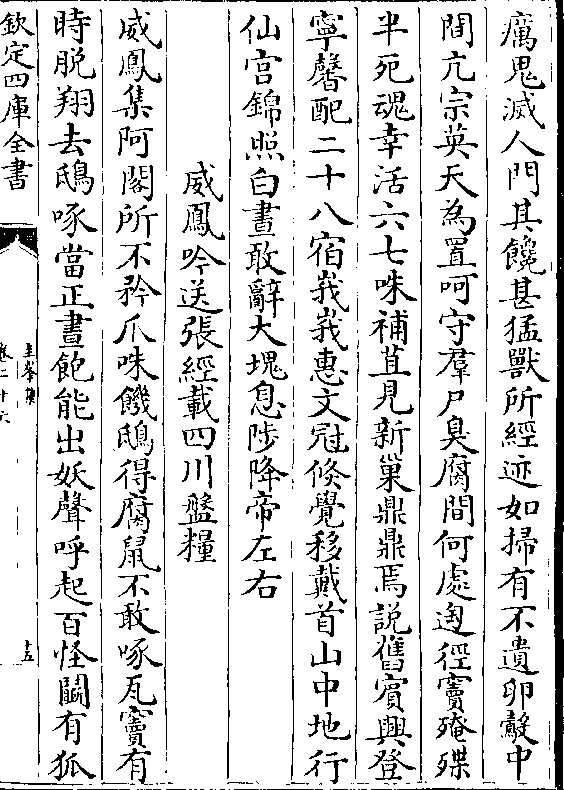 癘鬼滅人門其饞甚猛獸所經迹如掃有不遺卵鷇中
間亢宗英天為置呵守羣尸臭腐間何處逃徑竇殗殜
半死魂幸活六七咮補苴見新巢鼎鼎焉說舊賔興登
寧馨配二十八宿峩峩惠文冠倏覺移戴首山中地行
仙宫錦照白晝敢辭大塊息陟降帝左右
威鳳吟送張經載四川盤糧
威鳳集阿閣所不矜爪咮饑鴟得腐鼠不敢啄瓦竇有
時脱翔去鴟啄當正晝飽能出妖聲呼起百怪鬭有狐
欽定四庫全書
圭峯集
卷二十六
十五